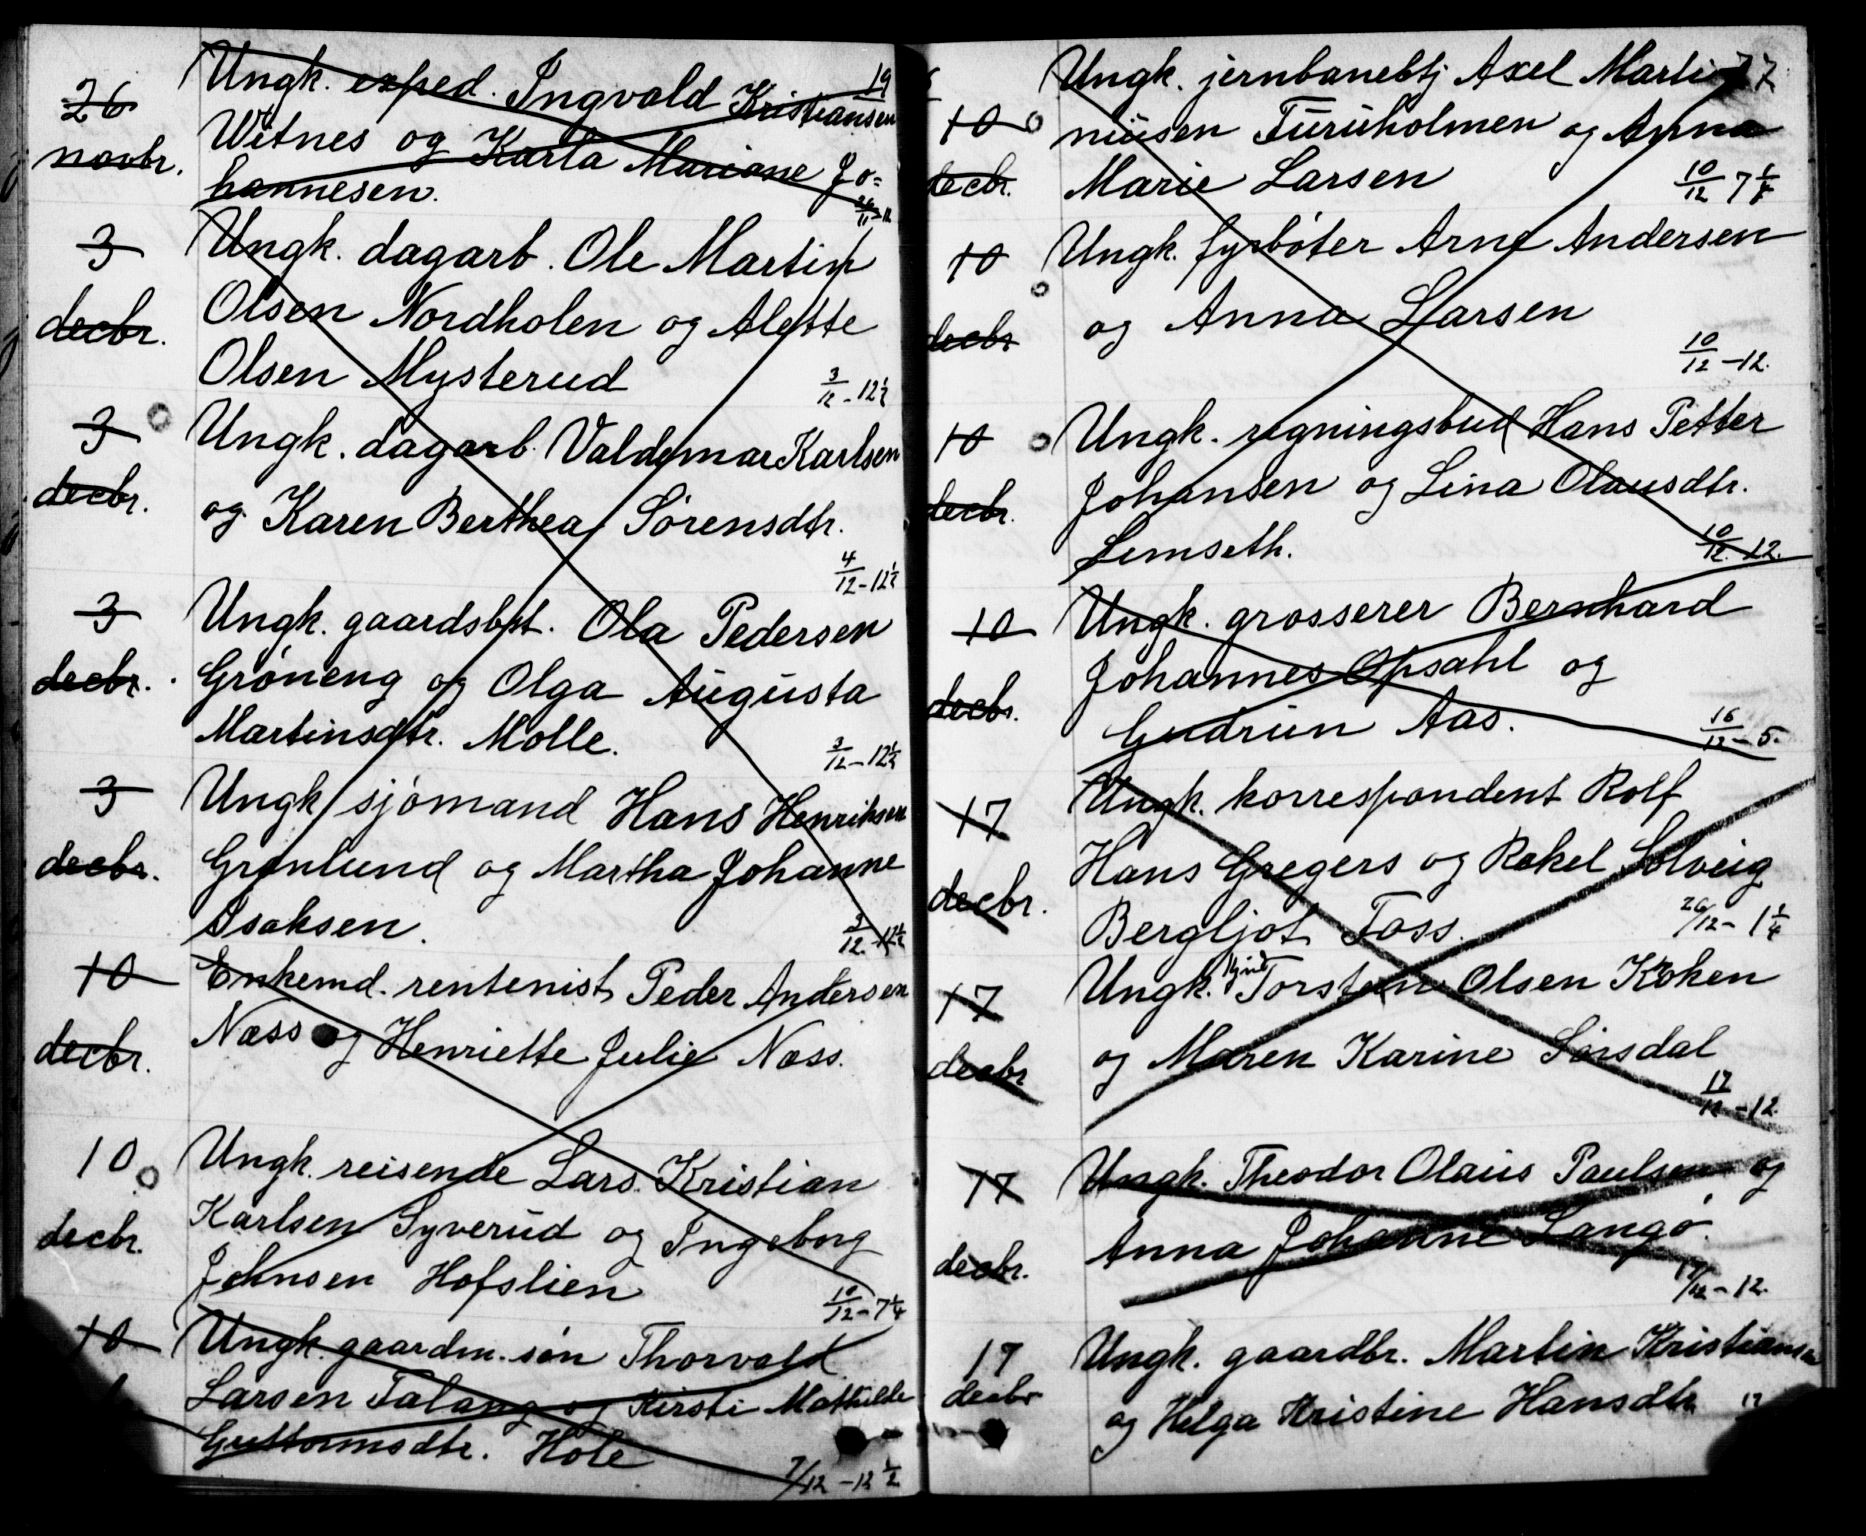 26 novbr.
Ungk. exped. Ingvald Kristiansen
Witnes og Karla Mariane Jo=
hannesen.
3 decbr.
Ungk. dagarb. Ole Martin
Olsen Nordholen og Alette
Olsen Mysterud
3/12 - 12½
3 decbr.
Ungk. dagarb. Valdemar Karlsen
og Karen Berthea Sørensdtr.
4/12 - 12½
3 decbr.
Ungk. gaardsbst. Ola Pedersen
Grøneng og Olga Augusta
Martinsdtr. Molle.
3/12 - 12½
3 decbr.
Ungk sjømand Hans Henriksen
Grønlund og Martha Johanne
Isaksen.
3/12 - 12½
10 decbr.
Enkemd. rentenist Peder Andersen
Næss og Henriette Julie Næss.
10 decbr.
Ungk. reisende Lars Kristian
Karlsen Syverud og Ingeborg
Johnsen Hofslien
10/12 - 7¼
10
Ungk. gaardm. søn Thorvald
Larsen Talang og Kirsti Mathilde
Guttormsdtr. Hole
7/12 - 12½
77
10 decbr.
Ungk. jernbanebtj Axel Marti
niusen Furuholmen og Anna
Marie Larsen
10/12 7¼
10 decbr
Ungk. fyrbøter Arne Andersen
og Anna Larsen
10/12 - 12.
10 decbr.
Ungk. regningsbud Hans Petter
Johansen og Lina Olausdtr.
Lemseth.
10/12 - 12.
10 decbr.
Ungk. grosserer Bernhard
Johannes Opsahl og
Gudrun Aas.
16/12 - 5.
17 decbr.
Ungk. korrespondent Rolf
Hans Gregers og Rakel Solveig
Bergljot Foss.
26/12 - 1¼
17 decbr
Ungk. Torsten Olsen Koken
og Maren Karine Sørsdal
17/12 - 12.
17 decbr.
Ungk. Theodor Olaus Paulsen og
Anna Johanne Langø.
17/12 - 12.
17 decbr
Ungk. gaardbr. Martin Kristiansen
og Helga Kristine Hansdtr